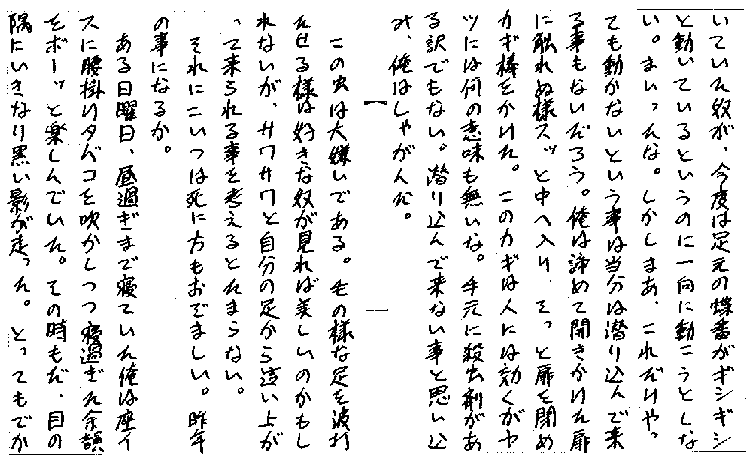 いていた奴が、今度は足元の蝶番がギシギシ
と動いているというのに一向に動こうとしな
い。まいったな。しかしまあ、これだけやっ
ても動かないという事は当分は潜り込んで来
る事もないだろう。俺は諦めて開きかけた扉
に触れぬ様スッと中へ入り、そっと扉を閉め
カギ棒をかけた。このカギは人には効くがヤ
ツには何の意味も無いな。手元に殺虫剤があ
る訳でもない。潜り込んで来ない事と思い込
み、俺はしゃがんだ。
【一
この虫は大嫌いである。毛の様な足を波打
たせる様は好きな奴が見れば美しいのかもし
れないが、サワサワと自分の足から這い上が
って来られる事を考えるとたまらない。
それにこいつは死に方もおぞましい。昨年
の事になるか。
ある日曜日、昼過ぎまで寝ていた俺は座イ
スに腰掛けタバコを吹かしつつ寝過ぎた余韻
をボーッと楽しんでいた。その時もだ、目の
隅にいきなり黒い影が走った。とってもでか